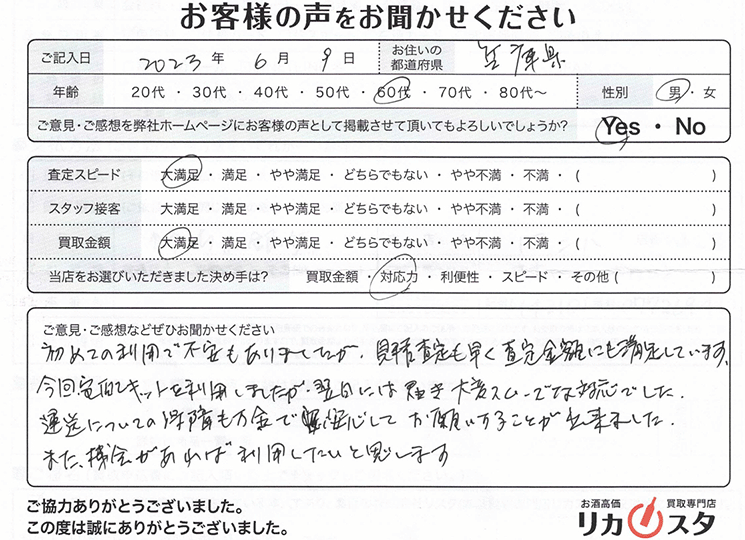 お客様の声をお聞かせください
ご記入日 2023 年 6 月 9 日 お住いの都道府県 兵庫県
年齢 20代 ・ 30代 ・ 40代 ・ 50代 ・ 60代 ・ 70代 ・ 80代〜 性別 男 ・ 女
ご意見・ご感想を弊社ホームページにお客様の声として掲載させて頂いてもよろしいでしょうか? Yes ・ No
査定スピード 大満足 ・ 満足 ・ やや満足 ・ どちらでもない ・ やや不満 ・ 不満 ・ ( )
スタッフ接客 大満足 ・ 満足 ・ やや満足 ・ どちらでもない ・ やや不満 ・ 不満 ・ ( )
買取金額 大満足 ・ 満足 ・ やや満足 ・ どちらでもない ・ やや不満 ・ 不満 ・ ( )
当店をお選びいただきました決め手は? 買取金額 ・ 対応力 ・ 利便性 ・ スピード ・ その他 ( )
ご意見・ご感想などぜひお聞かせください
初めての利用で不安もありましたが、見積査定も早く査定金額にも満足しています。
今回宅配キットを利用しましたが翌日には届き大変スムーズな対応でした.
運送についての保障も万全で安心してお願いすることが出来ました.
また、機会があれば利用したいと思います
ご協力ありがとうございました。
この度は誠にありがとうございました。
お酒高価 買取専門店
リカスタ